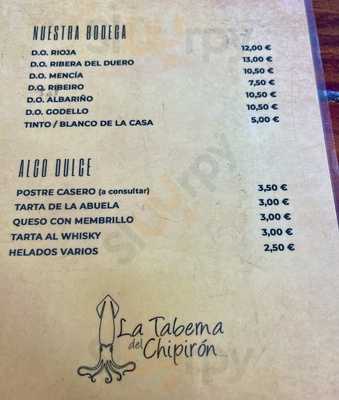 NUESTRA BODEGA
D.O. RIOJA 12,00 €
D.O. RIBERA DEL DUERO 13,00 €
D.O. MENCÍA 10,50 €
D.O. RIBEIRO 7,50 €
D.O. ALBARIÑO 10,50 €
D.O. GODELLO 10,50 €
TINTO / BLANCO DE LA CASA 5,00 €
ALGO DULCE
POSTRE CASERO (a consultar) 3,50 €
TARTA DE LA ABUELA 3,00 €
QUESO CON MEMBRILLO 3,00 €
TARTA AL WHISKY 3,00 €
HELADOS VARIOS 2,50 €
La Taberna
del Chipirón